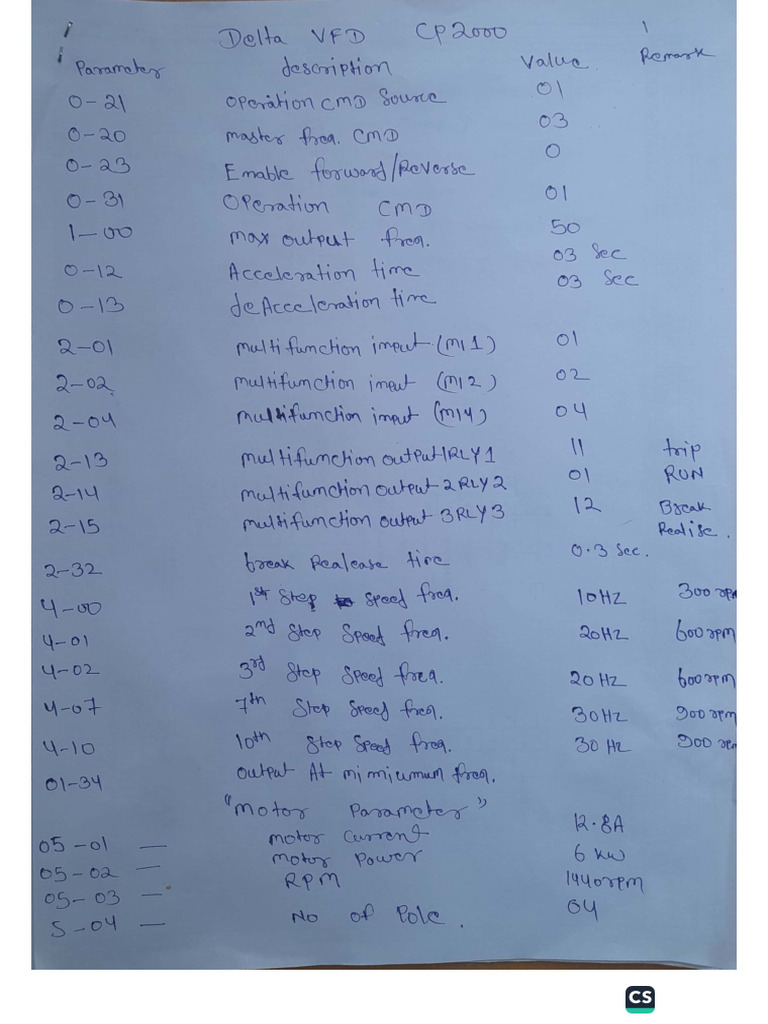 Delta VFD CP2000 1
Parameter description Value Remark
0-21 Operation CMD Source 01
0-20 master freq. CMD 03
0-23 Emable forward/Reverse 0
0-31 Operation CMD 01
1-00 max output freq. 50
0-12 Acceleration time 03 Sec
0-13 deAcceleration time 03 Sec
2-01 multifunction input (MI1) 01
2-02 multifunction input (MI2) 02
2-04 multifunction input (MI4) 04
2-13 multifunction output1RLY1 11 trip
2-14 multifunction output 2RLY2 01 RUN
2-15 multifunction output 3RLY3 12 Break
Realise.
2-32 break Realease time 0.3 Sec.
4-00 1st Step Speed freq. 10HZ 300 rpm
4-01 2nd Step Speed freq. 20HZ 600rpm
4-02 3rd Step Speed freq. 20HZ 600rpm
4-07 7th Step Speed freq. 30HZ 900rpm
4-10 10th Step Speed freq. 30 HZ 900 rpm
01-34 output At mimiumum freq.
"Motor Parameter"
05-01 — motor Current 12.8A
05-02 — motor Power 6 kw
05-03 — RPM 1440rpm
5-04 — No of Pole. 04
CS